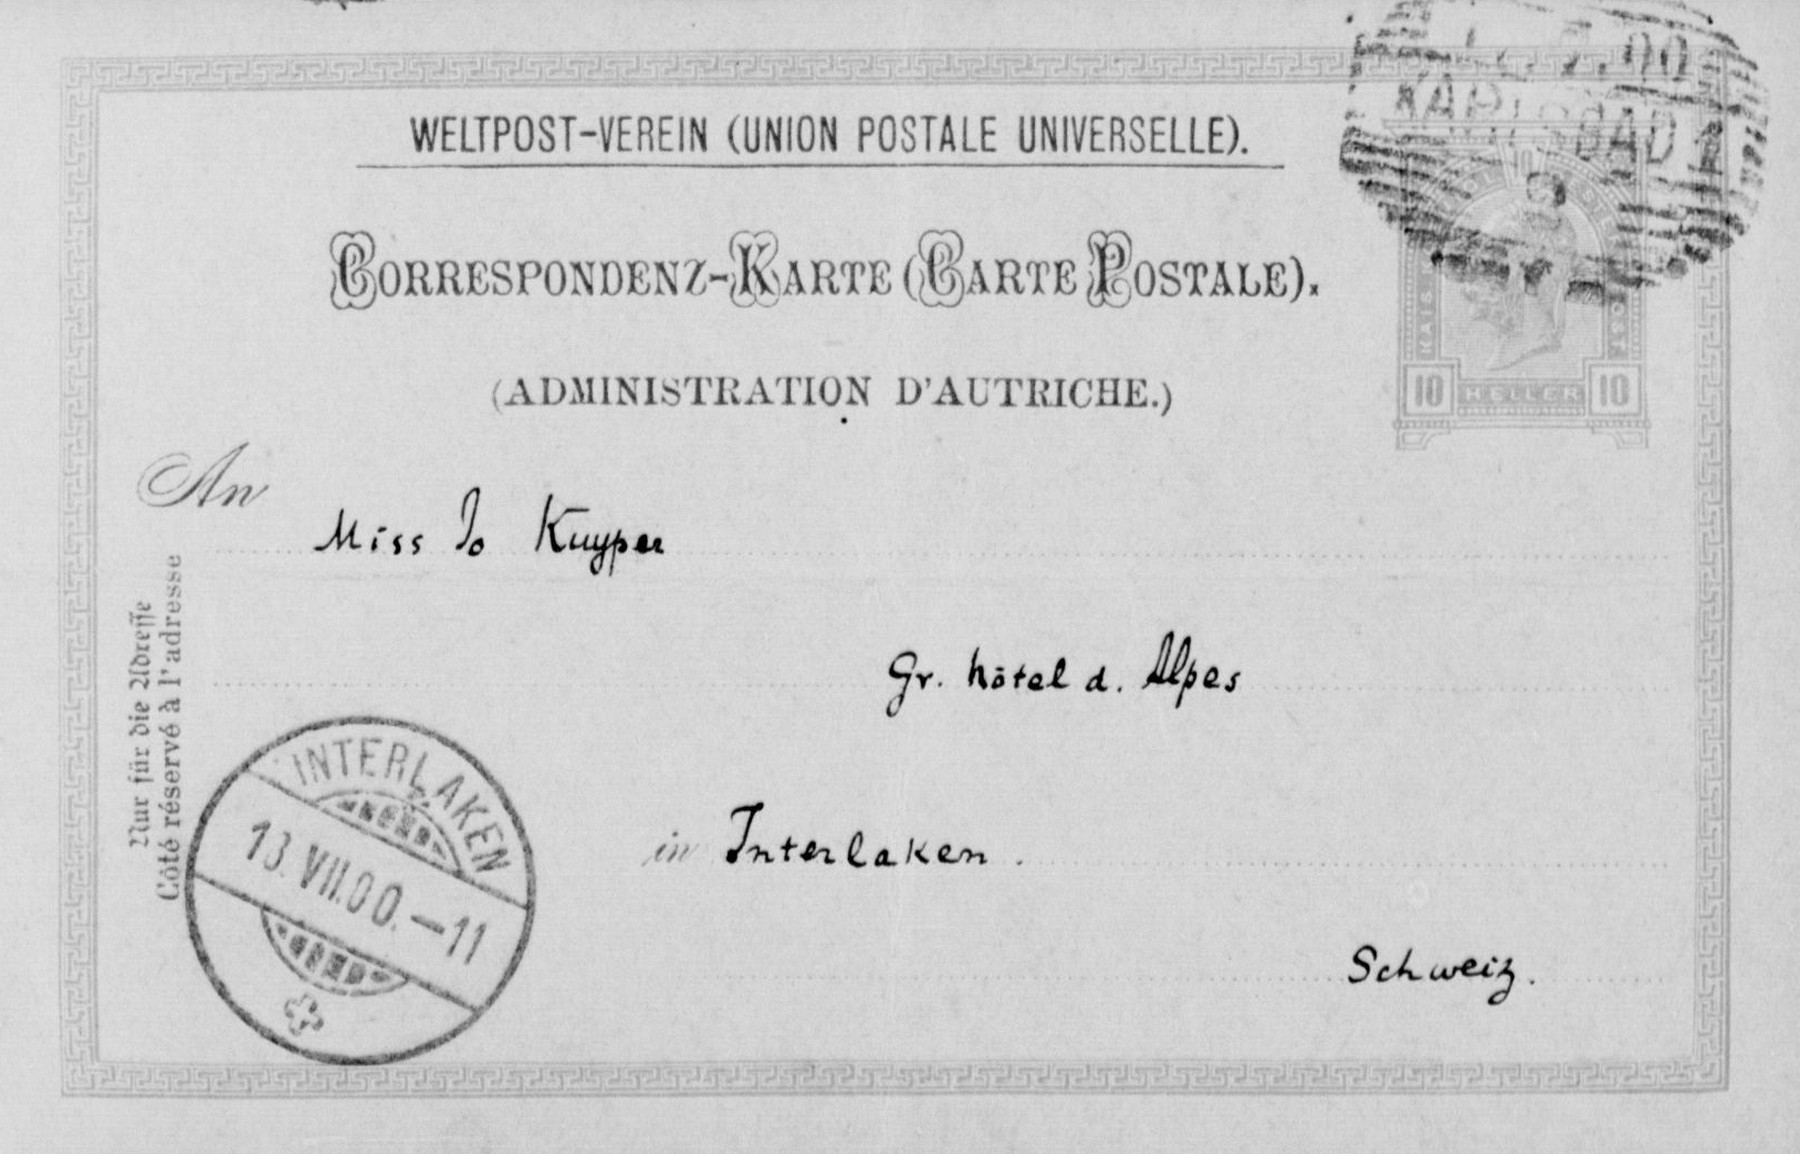 WELTPOST-VEREIN (UNION POSTALE UNIVERSELLE).
7.00
KARLSBAD 1
CORRESPONDENZ-KARTE (CARTE POSTALE).
(ADMINISTRATION D'AUTRICHE.)
KAIS
POST
10 HELLER 10
An
Miss Jo Kuyper
Gr. hôtel d. Alpes
in Interlaken.
Schweiz.
Nur für die Adresse
Côté réservé à l'adresse
INTERLAKEN
13.VII.00.-11